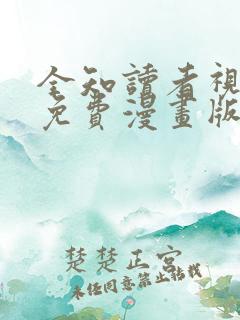 全知讀者視
免費漫畫版
楚楚正宮
未任同意禁止轉載